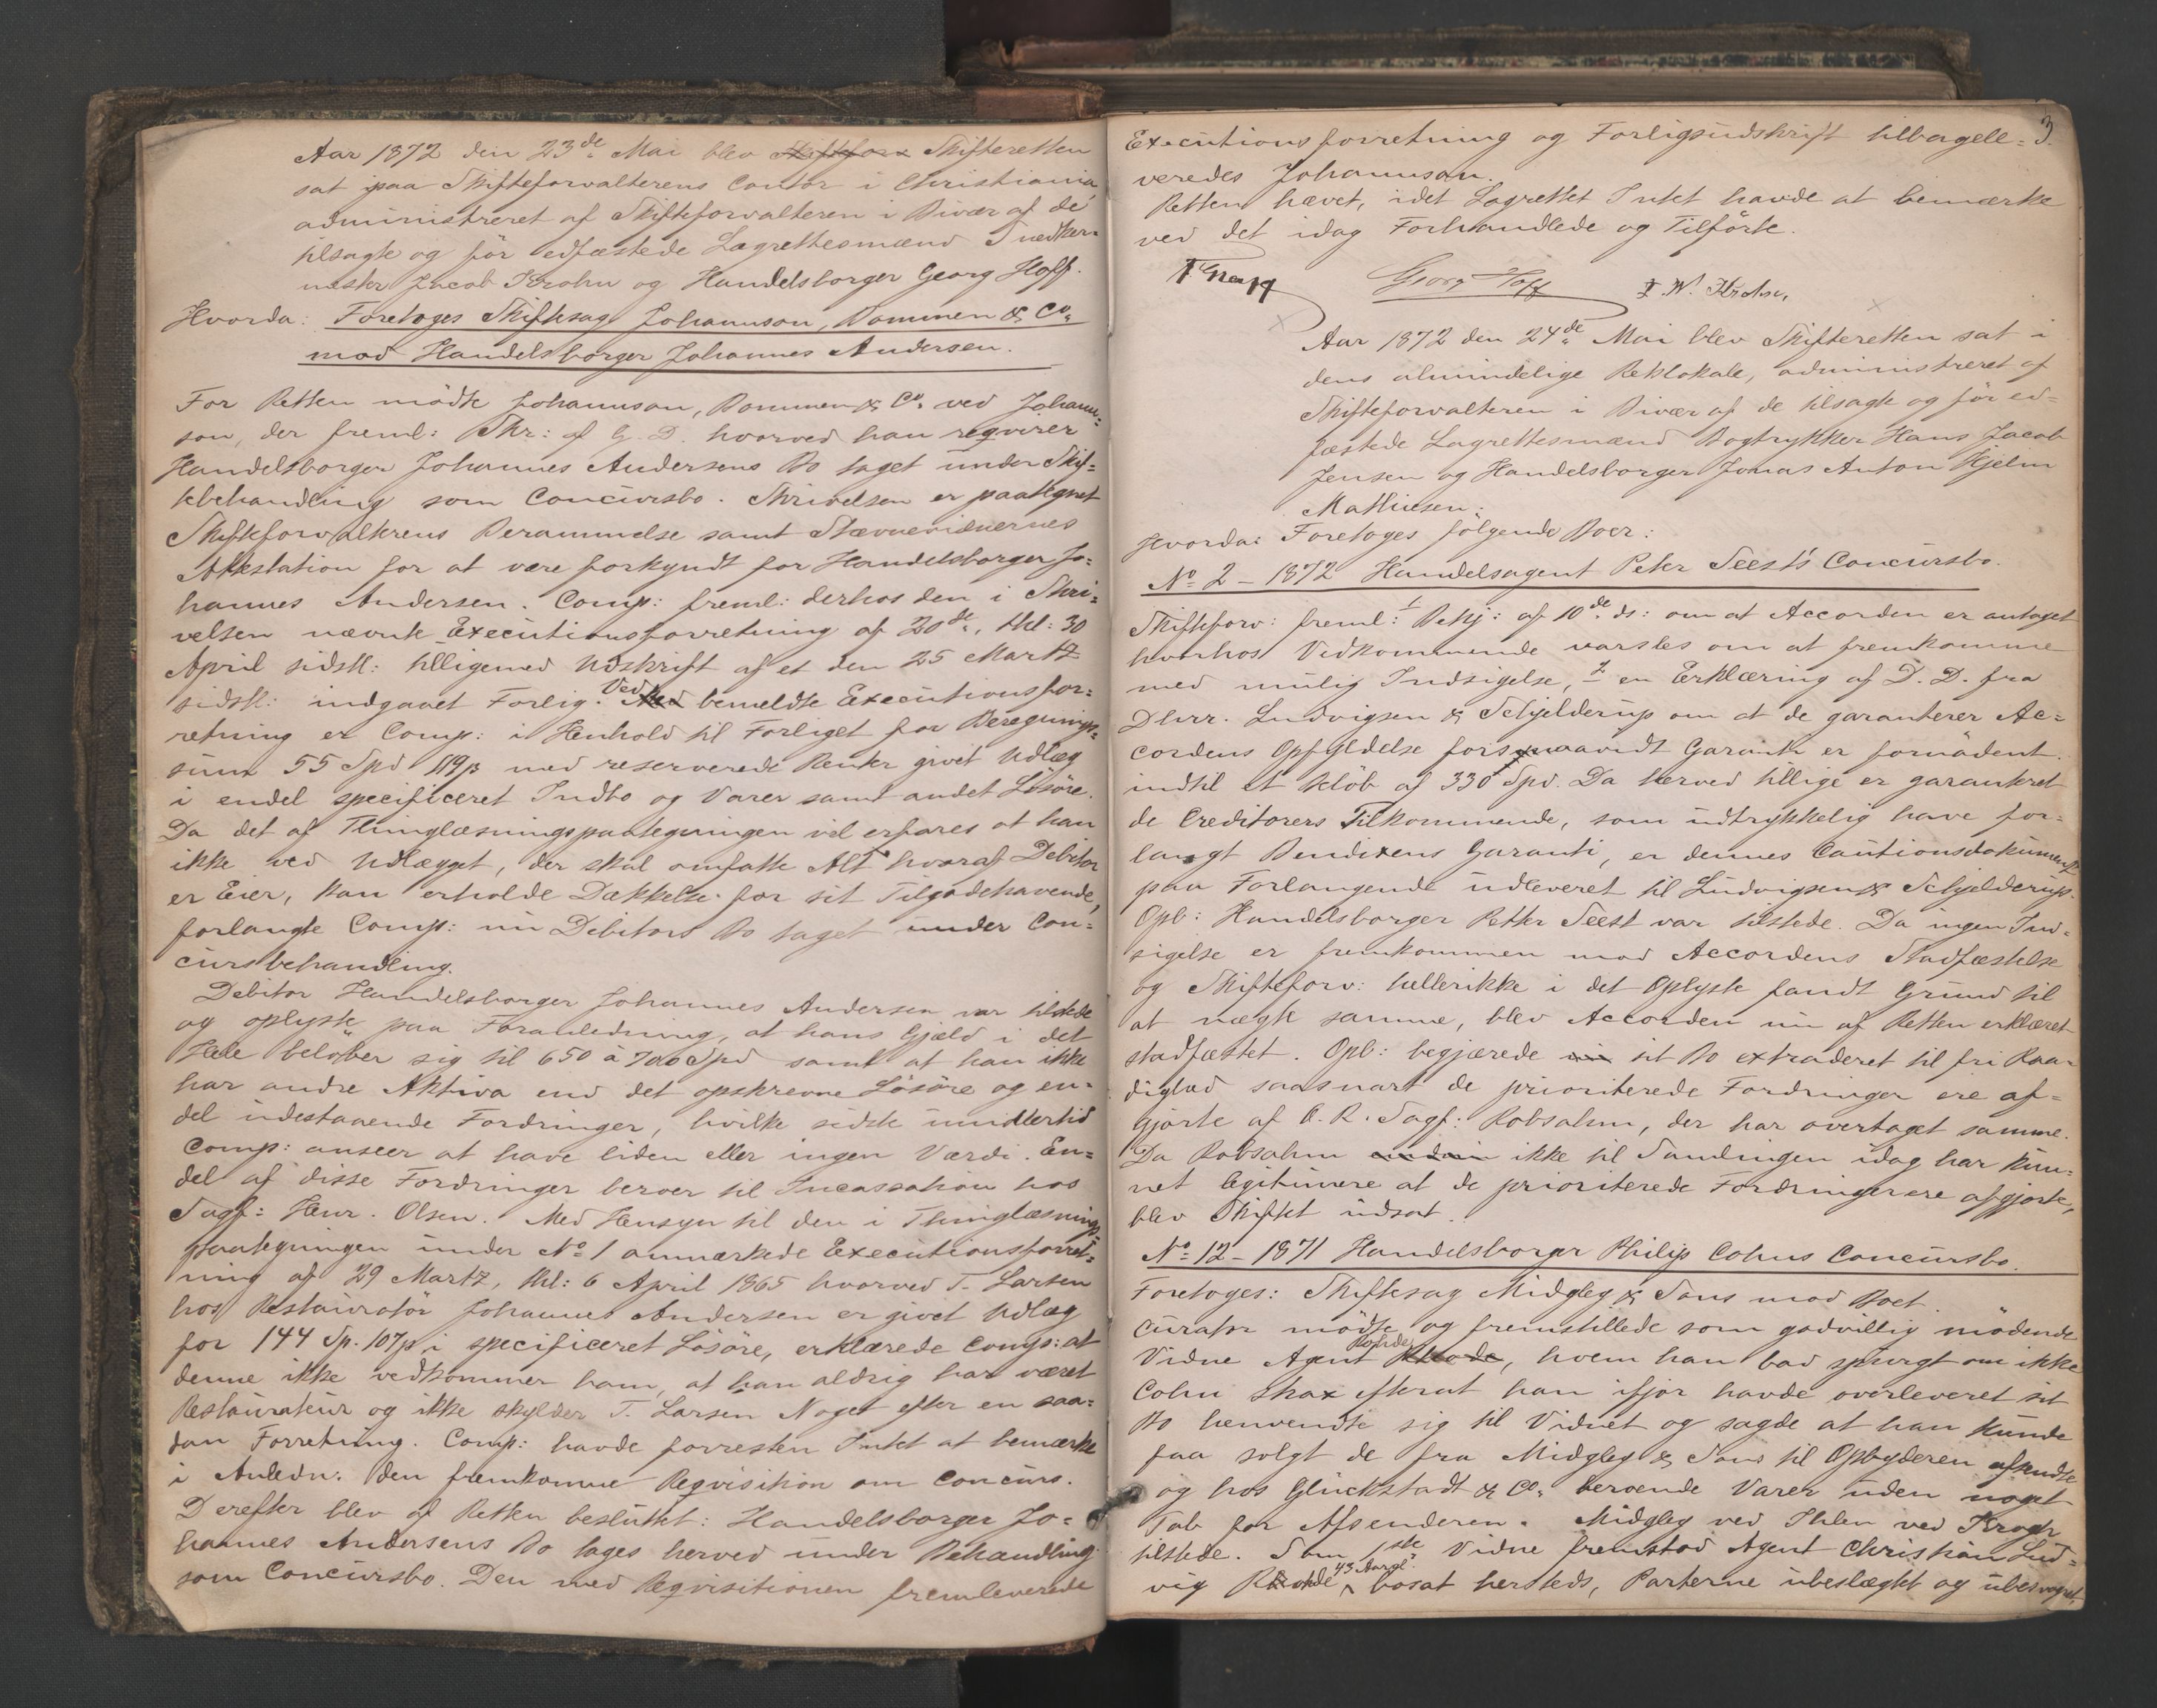 Aar 1872 den 23de Mai blev Skifteforv Skifteretten
sat paa Skifteforvalterens Contor i Christiania,
administreret af Skifteforvalteren i Bivær af de
tilsagte og før edfæstede Lagrettesmænd Snedker-
mester Jacob Krohn og Handelsborger Georg Hoff.
Hvorda: Foretoges Skiftesag Johannson, Dommen & Co.
mod Handelsborger Johannes Andersen.
For Retten mödte Johannson, Dommen & Co. ved Johann-
son, der freml: Skr: af G. D. hvorved han reqvirer
Handelsborger Johannes Andersens Bo taget under Skif-
tebehandling som Concursbo. Skrivelsen er paategnet
Skifteforvalterens Berammelse samt Stævnevidnernes
Attestation for at være forkyndt for Handelsborger Jo-
hannes Andersen. Comp: freml: derhos den i Skri-
velsen nævnte Executionsforretning af 20de, thl: 30
April sidstl: tilligemed Udskrift af et den 25 Martz
sidstl: indgaaet Forlig. Ved Med bemeldte Executionsfor-
retning er Comp: i Henhold til Forliget for Beregnings-
sum 55 Spd 119ß med reserverede Renter givet Udlæg
i endel specificeret Indbo og Varer samt andet Lösöre.
Da det af Thinglæsningspaategningen vil erfares at han
ikke ved Udlægget, der skal omfatte Alt hvoraf Debitor
er Eier, kan erholde Dækkelse for sit Tilgodehavende,
forlangte Comp: nu Debitors Bo taget under Con-
cursbehandling.
Debitor Handelsborger Johannes Andersen var tilstede
og oplyste paa Foranledning, at hans Gjæld i det
Hele belöber sig til 650 à 700 Spd samt at han ikke
har andre Aktiva end det opskrevne Lösöre og en-
del udestaaende Fordringer, hvilke sidste imidlertid
Comp: anseer at have liden eller ingen Værdi. En-
del af disse Fordringer beroer til Incassation hos
Sagf: Henr. Olsen. Med Hensyn til den i Thinglæsnings-
paategningen under No 1 anmærkede Executionsforret-
ning af 29 Martz, thl: 6 April 1865 hvorved T. Larsen
hos Restauratör Johannes Andersen er givet Udlæg
for 144 Sp. 107ß i specificeret Lösöre, erklærede Comp: at
denne ikke vedkommer ham, at han aldrig har været
Restaurateur og ikke skylder T. Larsen Noget efter en saa-
dan Forretning. Comp: havde forresten Intet at bemærke
i Anledn: den fremkomne Reqvisition om Concurs.
Derefter blev af Retten besluttet: Handelsborger Jo-
hannes Andersens Bo tages herved under Behandling
som Concursbo. Den med Reqvisitionen fremleverede
3.
Executionsforretning og Forligsudskrift tilbagele-
veredes Johannson.
Retten hævet, idet Lagrettet Intet havde at bemærke
ved det idag Forhandlede og Tilförte.
Georg Hoff J. N. Krohn,
Aar 1872 den 24de Mai blev Skifteretten sat i
dens almindelige Retslokale, administreret af
Skifteforvalteren i Bivær af de tilsagte og för ed-
fæstede Lagrettesmænd Bogtrykker Hans Jacob
Jensen og Handelsborger Jonas Anton Hjelm
Mathiesen.
Hvorda: Foretoges fölgende Boer:
No 2 - 1872 Handelsagent Peter Seest's Concursbo.
Skifteforv: freml: 1 Bekj: af 10de ds: om at Accorden er antaget
hvorhos Vedkommende varsles om at fremkomme
med mulig Indsigelse, 2 en Erklæring af D. D. fra
Dhrr. Ludvigsen & Schjelderup om at de garanterer Ac-
cordens Opfyldelse forsaavidt Garanti er fornödent
indtil et Belöb af 330 Spd. Da herved tillige er garanteret
de Creditorers Tilkommende, som udtrykkelig have for-
langt Bendixens Garanti, er dennes Cautionsdokument
paa Forlangende udleveret til Ludvigsen & Schjelderup.
Opb: Handelsborger Petter Seest var tilstede. Da ingen Ind-
sigelse er fremkommen mod Accordens Stadfæstelse
og Skifteforv: hellerikke i det Oplyste fandt Grund til
at nægte samme, blev Accorden nu af Retten erklæret
stadfæstet. Opb: begjærede sit Bo extraderet til fri Raa-
dighed saasnart de prioriterede Fordringer ere af-
gjorte af O. R. Sagf: Robsahm, der har overtaget samme.
Da Robsahm ikke til Samlingen idag har kun-
net legitimere at de prioriterede Fordringer ere afgjorte,
blev Skiftet udsat.
No 12 - 1871 Handelsborger Philip Cohns Concursbo.
Foretoges: Skiftesag Midgley & Sons mod Boet.
Curator mödte og fremstillede som godvillig mödende
Vidne Agent Rohde, hvem han bad spurgt om ikke
Cohn strax efterat han ifjor havde overleveret sit
Bo henvendte sig til Vidnet og sagde at han kunde
faa solgt de fra Midgley & Sons til Opbyderen afsendte
og hos Glückstadt & Co. beroende Varer uden noget
Tab for Afsenderen. Midgley ved Ihlen ved Krogh
tilstede. Som 1ste Vidne fremstod Agent Christian Lud-
vig Rohde 43 Aargl: bosat hersteds, Parterne ubeslægtet og ubesvogret,